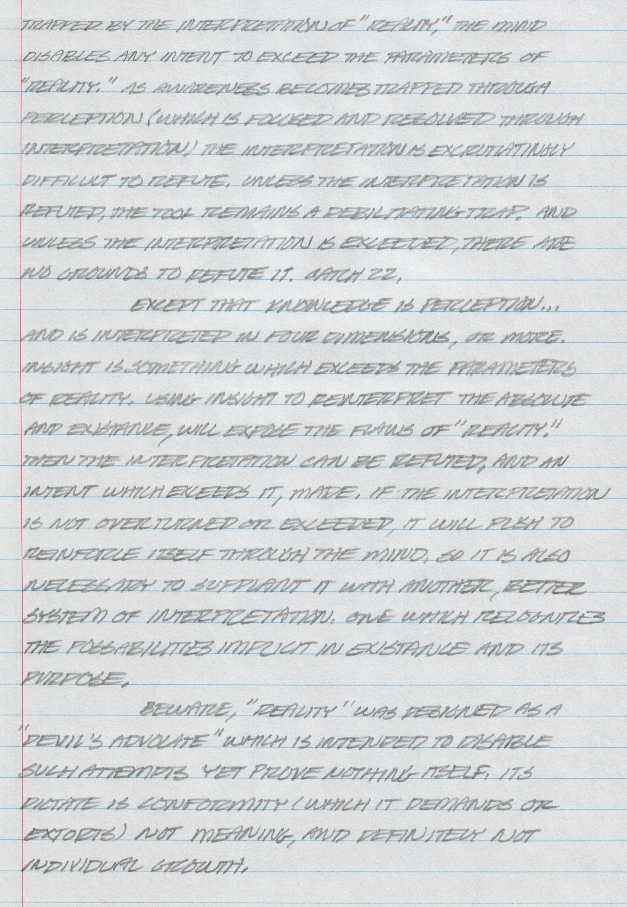 TRAPPED BY THE INTERPRETATION OF "REALITY," THE MIND
DISABLES ANY INTENT TO EXCEED THE PARAMETERS OF
"REALITY." AS AWARENESS BECOMES TRAPPED THROUGH
PERCEPTION (WHICH IS FOCUSED AND RESOLVED THROUGH
INTERPRETATION) THE INTERPRETATION IS EXCRUTIATINGLY
DIFFICULT TO REFUTE. UNLESS THE INTERPRETATION IS
REFUTED, THE TOOL REMAINS A DEBILITATING TRAP. AND
UNLESS THE INTERPRETATION IS EXCEEDED, THERE ARE
NO GROUNDS TO REFUTE IT. CATCH 22.
EXCEPT THAT KNOWLEDGE IS PERCEPTION...
AND IS INTERPRETED IN FOUR DIMENSIONS, OR MORE.
INSIGHT IS SOMETHING WHICH EXCEEDS THE PARAMETERS
OF REALITY. USING INSIGHT TO REINTERPRET THE ABSOLUTE
AND EXISTANCE, WILL EXPOSE THE FLAWS OF "REALITY."
THEN THE INTERPRETATION CAN BE REFUTED, AND AN
INTENT WHICH EXCEEDS IT, MADE. IF THE INTERPRETATION
IS NOT OVERTURNED OR EXCEEDED, IT WILL PUSH TO
REINFORCE ITSELF THROUGH THE MIND. SO IT IS ALSO
NECESSARY TO SUPPLANT IT WITH ANOTHER, BETTER
SYSTEM OF INTERPRETATION. ONE WHICH RECOGNIZES
THE POSSABILITIES IMPLICIT IN EXISTANCE AND ITS
PURPOSE.
BEWARE, "REALITY" WAS DESIGNED AS A
"DEVIL'S ADVOCATE" WHICH IS INTENDED TO DISABLE
SUCH ATTEMPTS YET PROVE NOTHING ITSELF. ITS
DICTATE IS CONFORMITY (WHICH IT DEMANDS OR
EXTORTS) NOT MEANING, AND DEFINITELY NOT
INDIVIDUAL GROWTH.